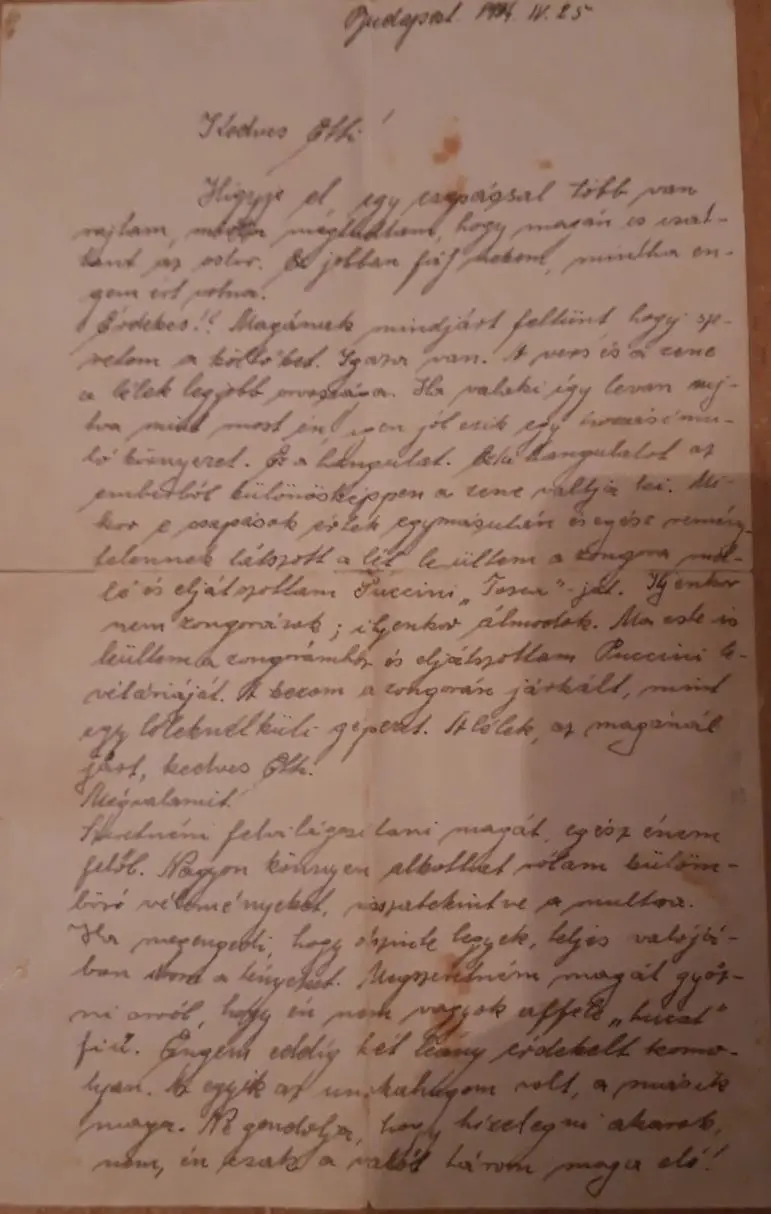 Budapest. 1944. IV. 25
Kedves Etti!
Higyje el egy csapással több van
rajtam, mióta megtudtam, hogy magán is csat-
tant az ostor. És jobban fáj nekem, mintha en-
gem ért volna.
Érdekes!! Magának mindjárt feltünt, hogy sze-
retem a költőket. Igaza van. A vers és a zene
a lélek legjobb orvossága. Ha valaki így le van sujt-
va mint most én, igen jól esik egy hozzásimu-
ló környezet. Ez a hangulat. Ezt a hangulatot az
emberből különösképpen a zene váltja ki. Mi-
kor e csapások értek egymásután és egész remény-
telennek látszott a lét leültem a zongora mel-
lé és eljátszottam Puccini „Tosca"-ját. Ilyenkor
nem zongorázok; ilyenkor álmodok. Ma este is
leültem a zongorámhoz és eljátszottam Puccini le-
véláriáját. A kezem a zongorán járkált, mint
egy léleknélküli gépezet. A lélek, az magánál
járt, kedves Etti.
Mégvalamit.
Szeretném felvilágosítani magát, egész énem
felől. Nagyon könnyen alkothat rólam külöm-
böző véleményeket, visszatekintve a multra.
Ha megengedi, hogy őszinte legyek, teljes valójá-
ban írom a tényeket. Megszeretném magát győz-
ni arról, hogy én nem vagyok afféle „huzat"
fiú. Engem eddig két leány érdekelt komo-
lyan. Az egyik az unokahúgom volt, a másik
maga. Ne gondolja, hogy hizelegni akarok,
nem, én csak a valót tárom maga elé!